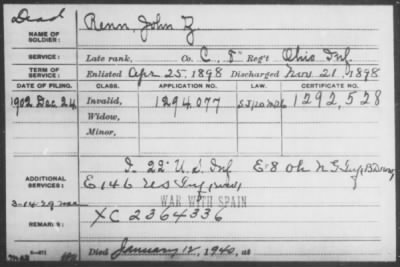 Dead
NAME OF SOLDIER: Renn, John Z.
SERVICE: Late rank, Co. C, 8" Reg't Ohio Inf.
TERM OF SERVICE: Enlisted Apr 25, 1898 Discharged Nov 21, 1898
DATE OF FILING. CLASS. APPLICATION NO. LAW. CERTIFICATE NO.
1902 Dec 24 Invalid, 1294,077 1292,528
Widow,
Minor,
I 22" U.S. Inf E 8 Oh N G
ADDITIONAL SERVICES: E 146
WAR WITH SPAIN
3-14-29
REMARKS: XC 2364336
Died January 12, 1940, at